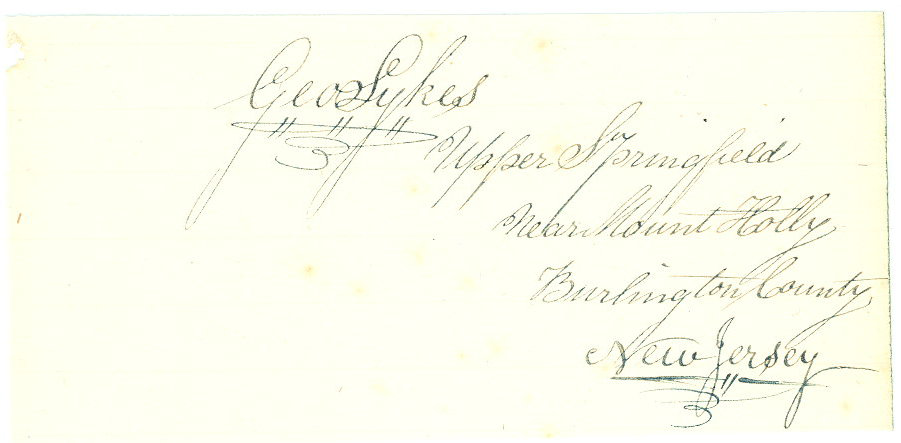 Geo Sykes
Upper Springfield
Near Mount Holly
Burlington County
New Jersey